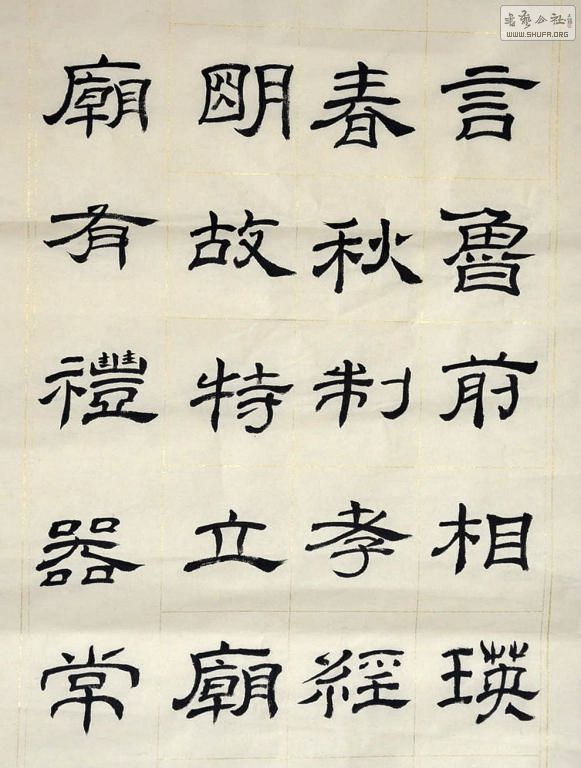 言魯前相瑛
春秋制孝經
朙故特立廟
廟有禮器常
书艺公社
WWW.SHUFA.ORG